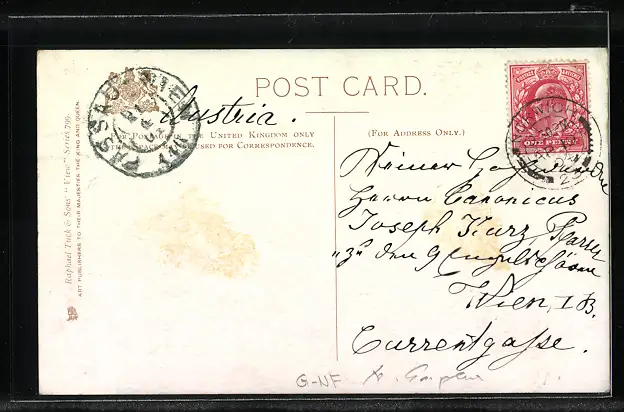 POST CARD.
Austria.
FOR POSTAGE IN THE UNITED KINGDOM ONLY
THIS SPACE MAY BE USED FOR CORRESPONDENCE.
(FOR ADDRESS ONLY.)
Raphael Tuck & Sons' "View" Series 799.
ART PUBLISHERS TO THEIR MAJESTIES THE KING AND QUEEN.
PASSAU
WIEN
ONE PENNY
Herrn Canonicus
Joseph Kurz, Pfarrer
"zu den 9
Wien, I B.
Currentgasse.
G-NF